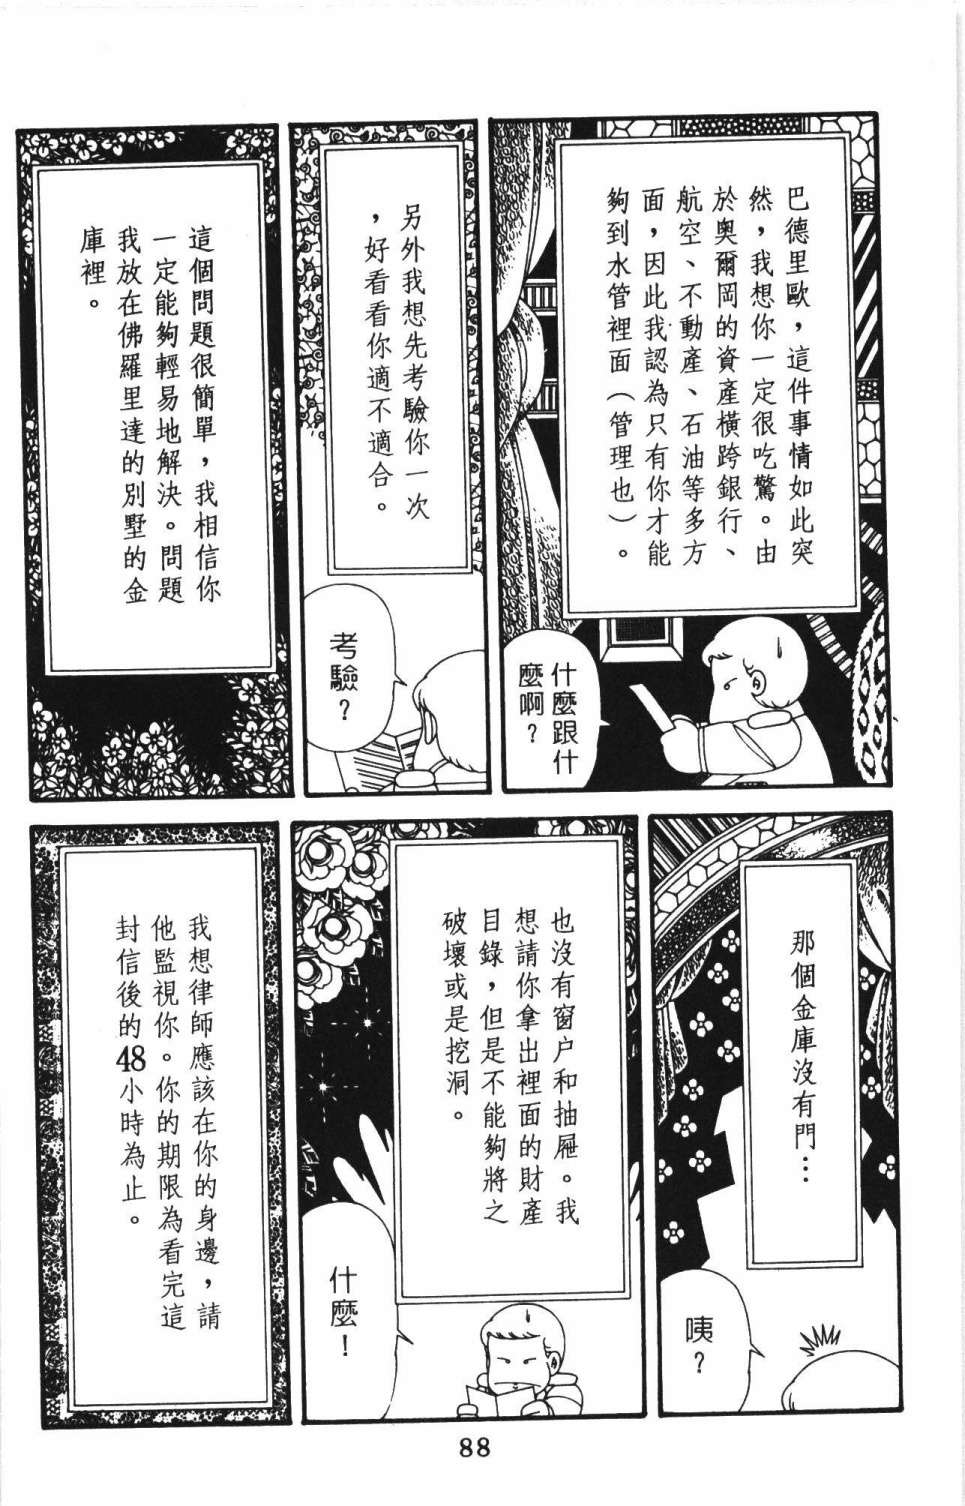 巴德里歐，這件事情如此突
然，我想你一定很吃驚。由
於奧爾岡的資產橫跨銀行、
航空、不動產、石油等多方
面，因此我認為只有你才能
夠到水管裡面（管理也）。
什麼跟什
麼啊？
另外我想先考驗你一次
，好看看你適不適合。
考驗？
這個問題很簡單，我相信你
一定能夠輕易地解決。問題
我放在佛羅里達的別墅的金
庫裡。
那個金庫沒有門…
咦？
也沒有窗户和抽屜。我
想請你拿出裡面的財產
目錄，但是不能夠將之
破壞或是挖洞。
什麼！
我想律師應該在你的身邊，請
他監視你。你的期限為看完這
封信後的48小時為止。
88